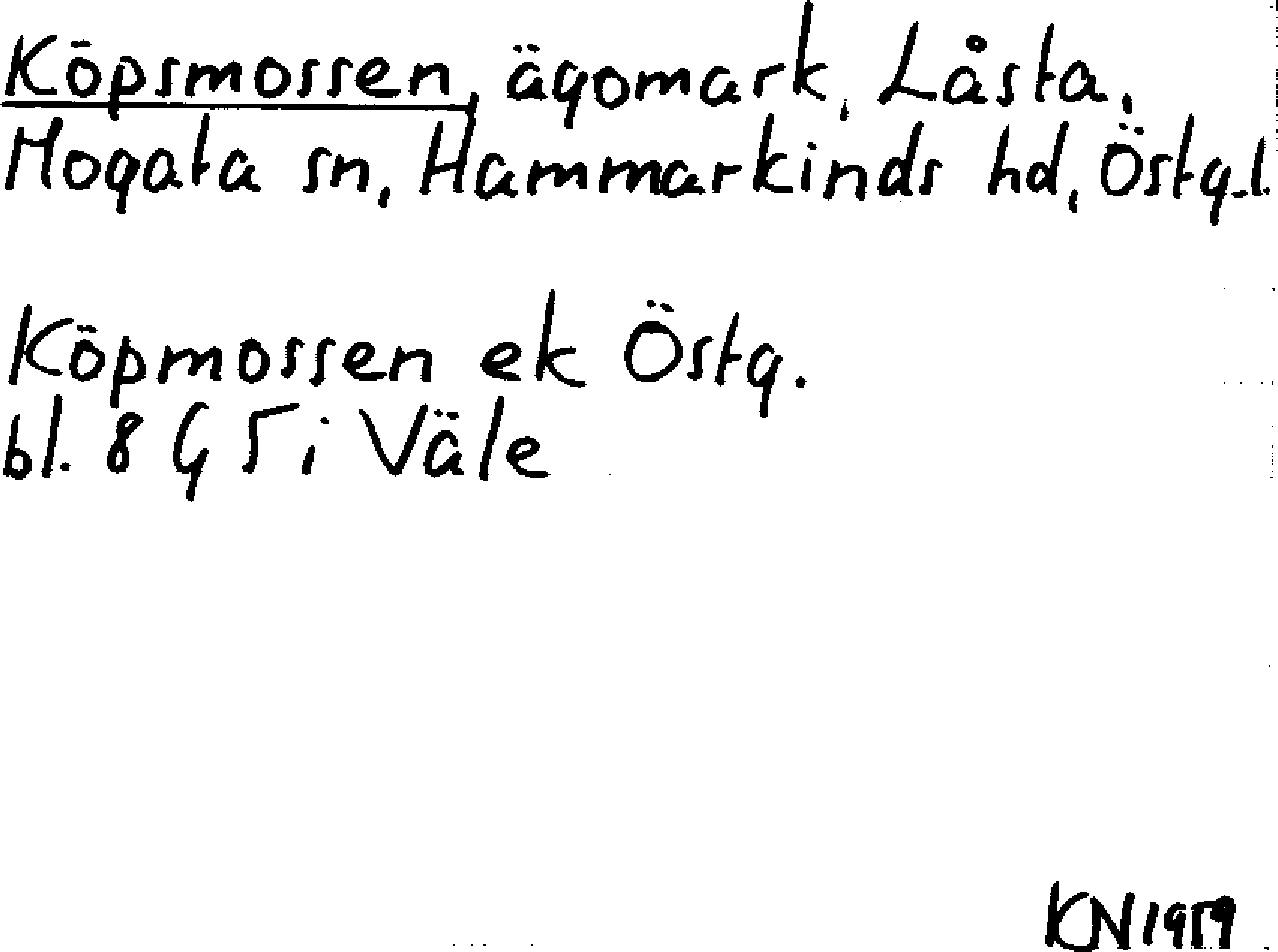 Köpsmossen, ägomark, Låsta,
Mogata sn, Hammarkinds hd, Östg.l.
Köpmossen ek Östg.
bl. 8 G 5 i Väle
KN 1959